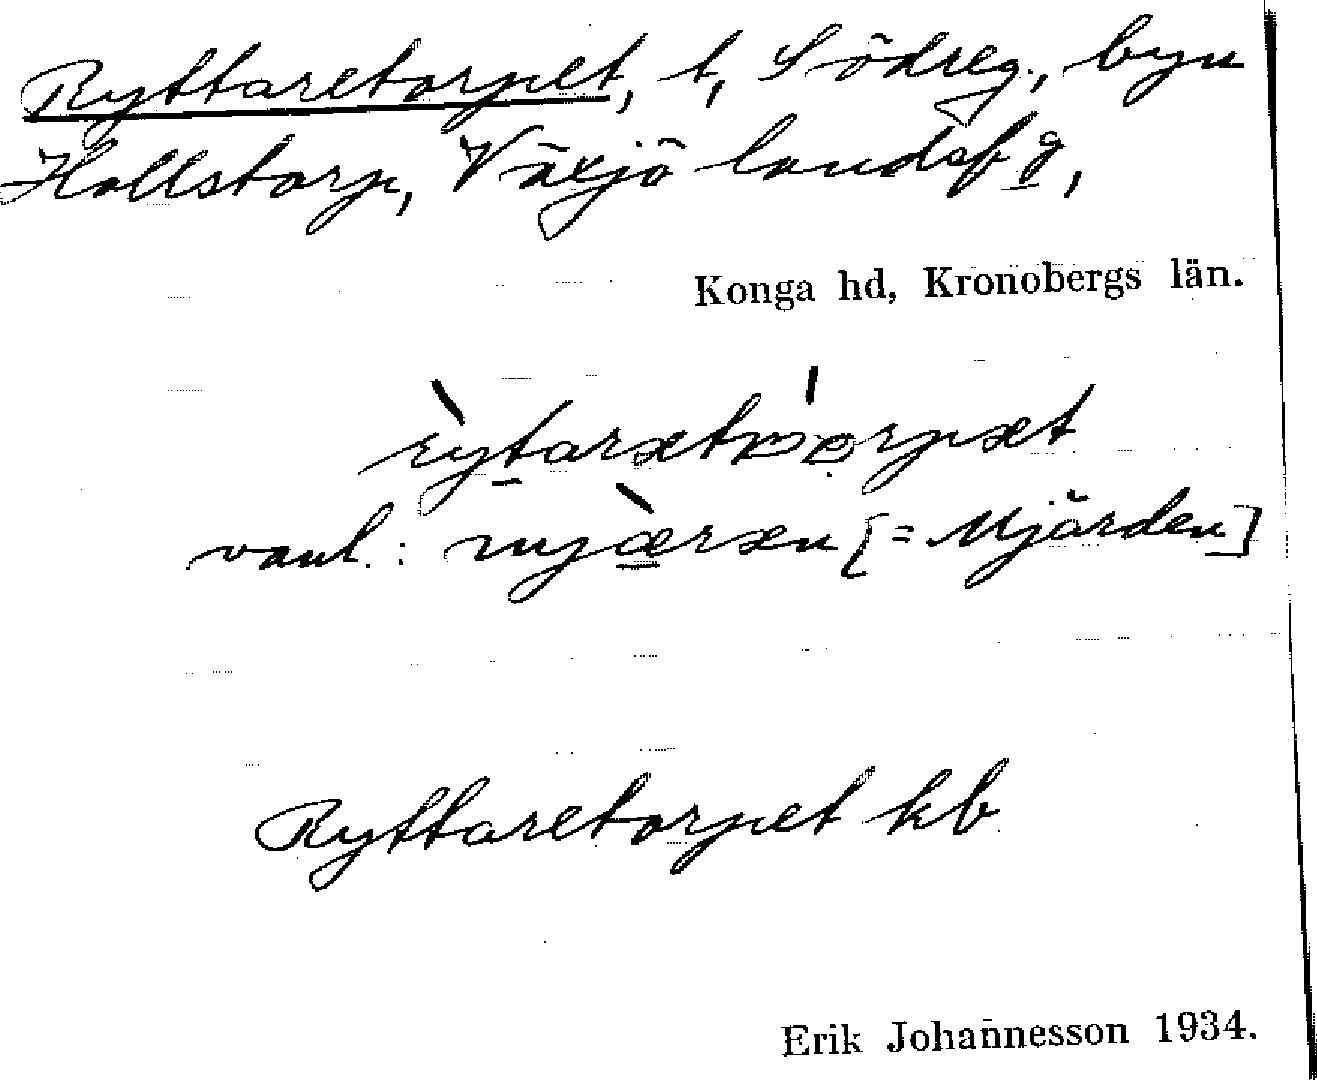 Ryttaretorpet, t, Södreg., byn
Hollstorp, Växjö landsfg,
Konga hd, Kronobergs län.
vanl.: [= Mjärden]
Ryttaretorpet kb
Erik Johannesson 1934.